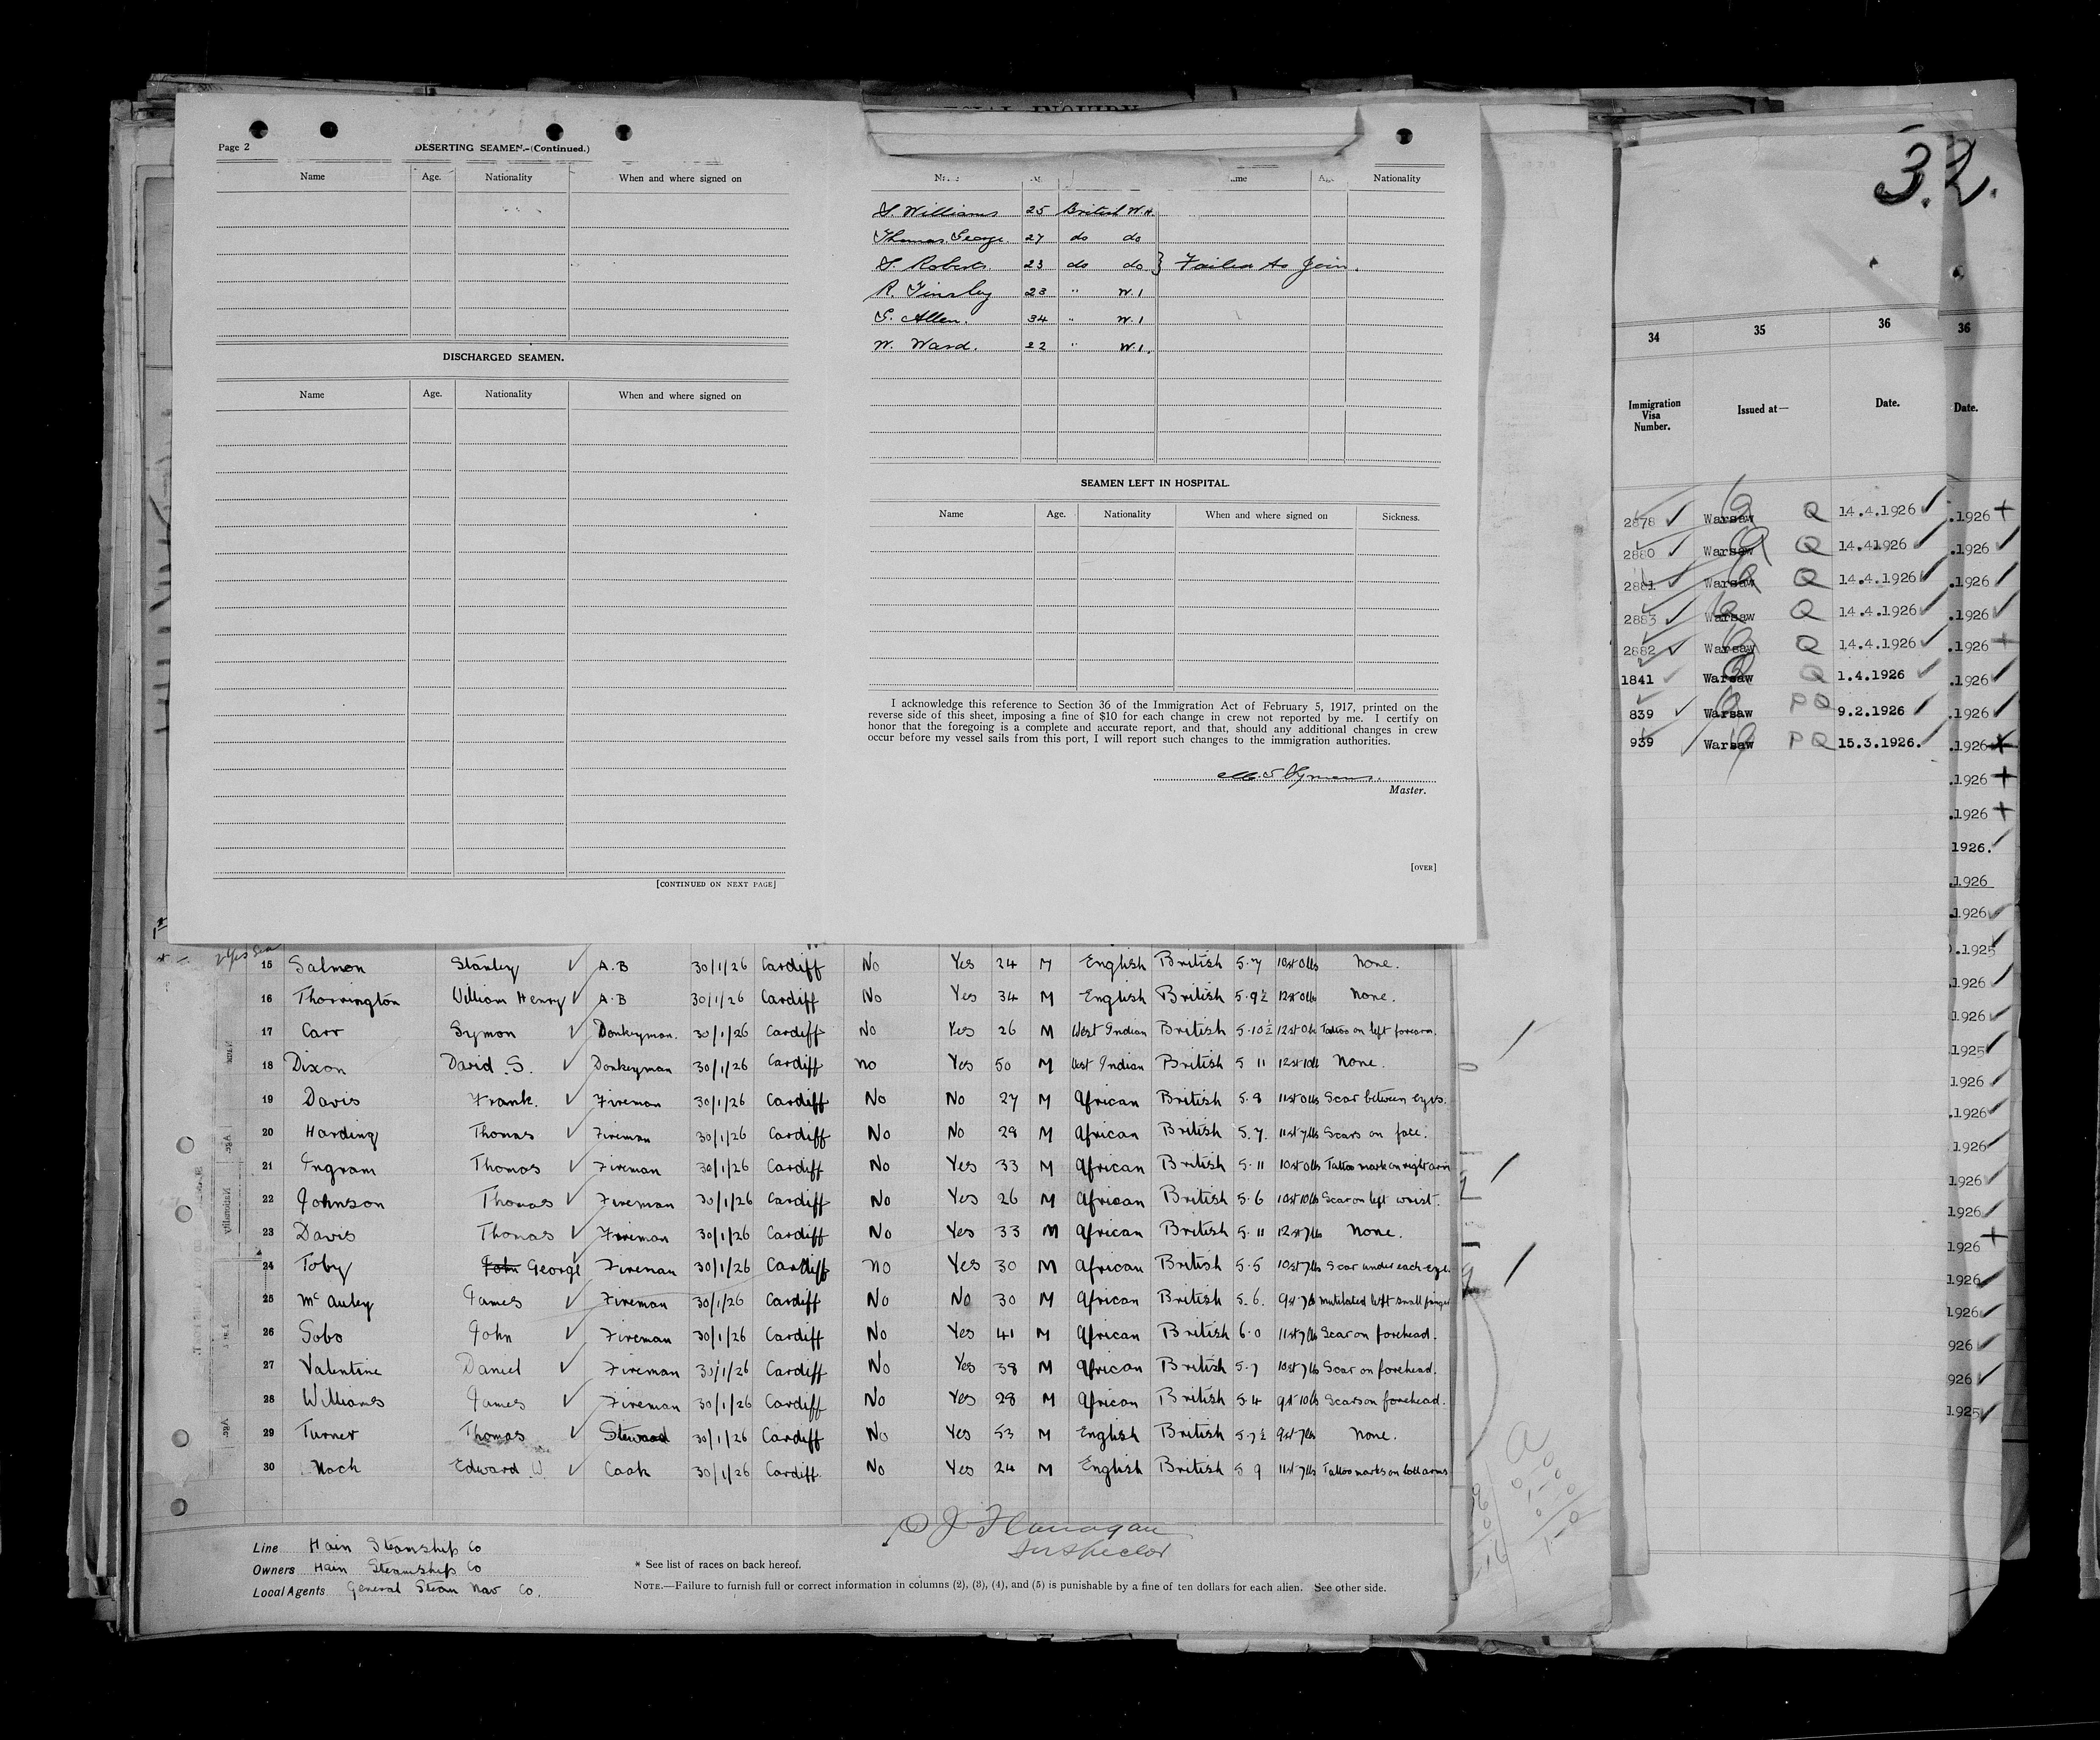 SPECIAL INQUIRY
Page 2
DESERTING SEAMEN.-(Continued.)
Name Age. Nationality When and where signed on
DISCHARGED SEAMEN.
Name Age. Nationality When and where signed on
[CONTINUED ON NEXT PAGE]
Nationality
S. Williams 25 British
Thomas George. 27 do do
S. Roberts. 23 do do } Failed to Join.
R. Tinsley 23 " W.I
G. Allen. 34 " W.I
W. Ward. 22 " W.I.
SEAMEN LEFT IN HOSPITAL.
Name Age. Nationality When and where signed on Sickness.
I acknowledge this reference to Section 36 of the Immigration Act of February 5, 1917, printed on the
reverse side of this sheet, imposing a fine of $10 for each change in crew not reported by me. I certify on
honor that the foregoing is a complete and accurate report, and that, should any additional changes in crew
occur before my vessel sails from this port, I will report such changes to the immigration authorities.
Master.
[OVER]
15 Salmon Stanley ✓ A.B 30/1/26 Cardiff No Yes 24 M English British 5.7 10st 0lbs None.
16 Thorrington William Henry ✓ A.B 30/1/26 Cardiff No Yes 34 M English British 5.9½ 12st 0lbs None.
17 Carr Symon ✓ Donkeyman. 30/1/26 Cardiff No Yes 26 M West Indian British 5.10½ 12st 0lbs Tattoo on left forearm.
18 Dixon David .S. ✓ Donkeyman 30/1/26 Cardiff no Yes 50 M West Indian British 5 11 12st 10lb None.
19 Davis Frank. ✓ Fireman 30/1/26 Cardiff No No 27 M African British 5.8 11st 0lbs Scar between eyes.
20 Harding Thomas ✓ Fireman 30/1/26 Cardiff No No 29 M African British 5.7. 11st 7lbs Scars on face.
21 Ingram Thomas ✓ Fireman 30/1/26 Cardiff No Yes 33 M African British 5.11 10st 0lbs Tattoo mark on right arm
22 Johnson Thomas ✓ Fireman 30/1/26 Cardiff No Yes 26 M African British 5.6 10st 10lbs Scar on left wrist.
23 Davis Thomas ✓ Fireman 30/1/26 Cardiff No Yes 33 M African British 5.11 12st 7lbs None.
24 Toby John George Fireman 30/1/26 Cardiff no Yes 30 M African British 5.5 10st 7lbs Scar under each eye.
25 McAuley James ✓ Fireman 30/1/26 Cardiff No No 30 M African British 5.6. 9st 7lb mutilated left small finger
26 Sobo John ✓ Fireman 30/1/26 Cardiff No Yes 41 M African British 6.0 11st 7lbs Scar on forehead.
27 Valentine Daniel ✓ Fireman 30/1/26 Cardiff No Yes 38 M African British 5.7 10st 7lbs Scar on forehead.
28 Williams James ✓ Fireman 30/1/26 Cardiff No Yes 28 M African British 5.4 9st 10lbs Scars on forehead.
29 Turner Thomas ✓ Steward 30/1/26 Cardiff No Yes 53 M English British 5.7½ 9st 7lbs None.
30 Nock Edward W. ✓ Cook 30/1/26 Cardiff. No Yes 24 M English British 5 9 11st 7lbs Tattoo marks on both arms
J Flanagan
Inspector
Line Hain Steamship Co
Owners Hain Steamship Co
Local Agents General Steam Nav Co.
* See list of races on back hereof.
NOTE.—Failure to furnish full or correct information in columns (2), (3), (4), and (5) is punishable by a fine of ten dollars for each alien. See other side.
32.
34 35 36 36
Immigration Visa Number. Issued at— Date. Date.
2878 ✓ Warsaw Q 14.4.1926 ✓ .1926 +
2880 ✓ Warsaw Q 14.41926 ✓ .1926 ✓
2881 ✓ Warsaw Q 14.4.1926 ✓ .1926 ✓
2883 ✓ Warsaw Q 14.4.1926 ✓ .1926 ✓
2882 ✓ Warsaw Q 14.4.1926 ✓ .1926 +
1841 ✓ Warsaw Q 1.4.1926 ✓ .1926 ✓
839 ✓ Warsaw PQ 9.2.1926 ✓ .1926 ✓
939 Warsaw PQ 15.3.1926. ✓ .1926
.1926 +
.1926 +
1926. ✓
.1926
.1926 ✓
.1925 ✓
.1926 ✓
.1926 ✓
.1925 ✓
.1926 ✓
.1926 ✓
.1926 ✓
1926 ✓
.1926 ✓
1926 +
1926 ✓
.1926 ✓
926 ✓
926 ✓
1925 ✓